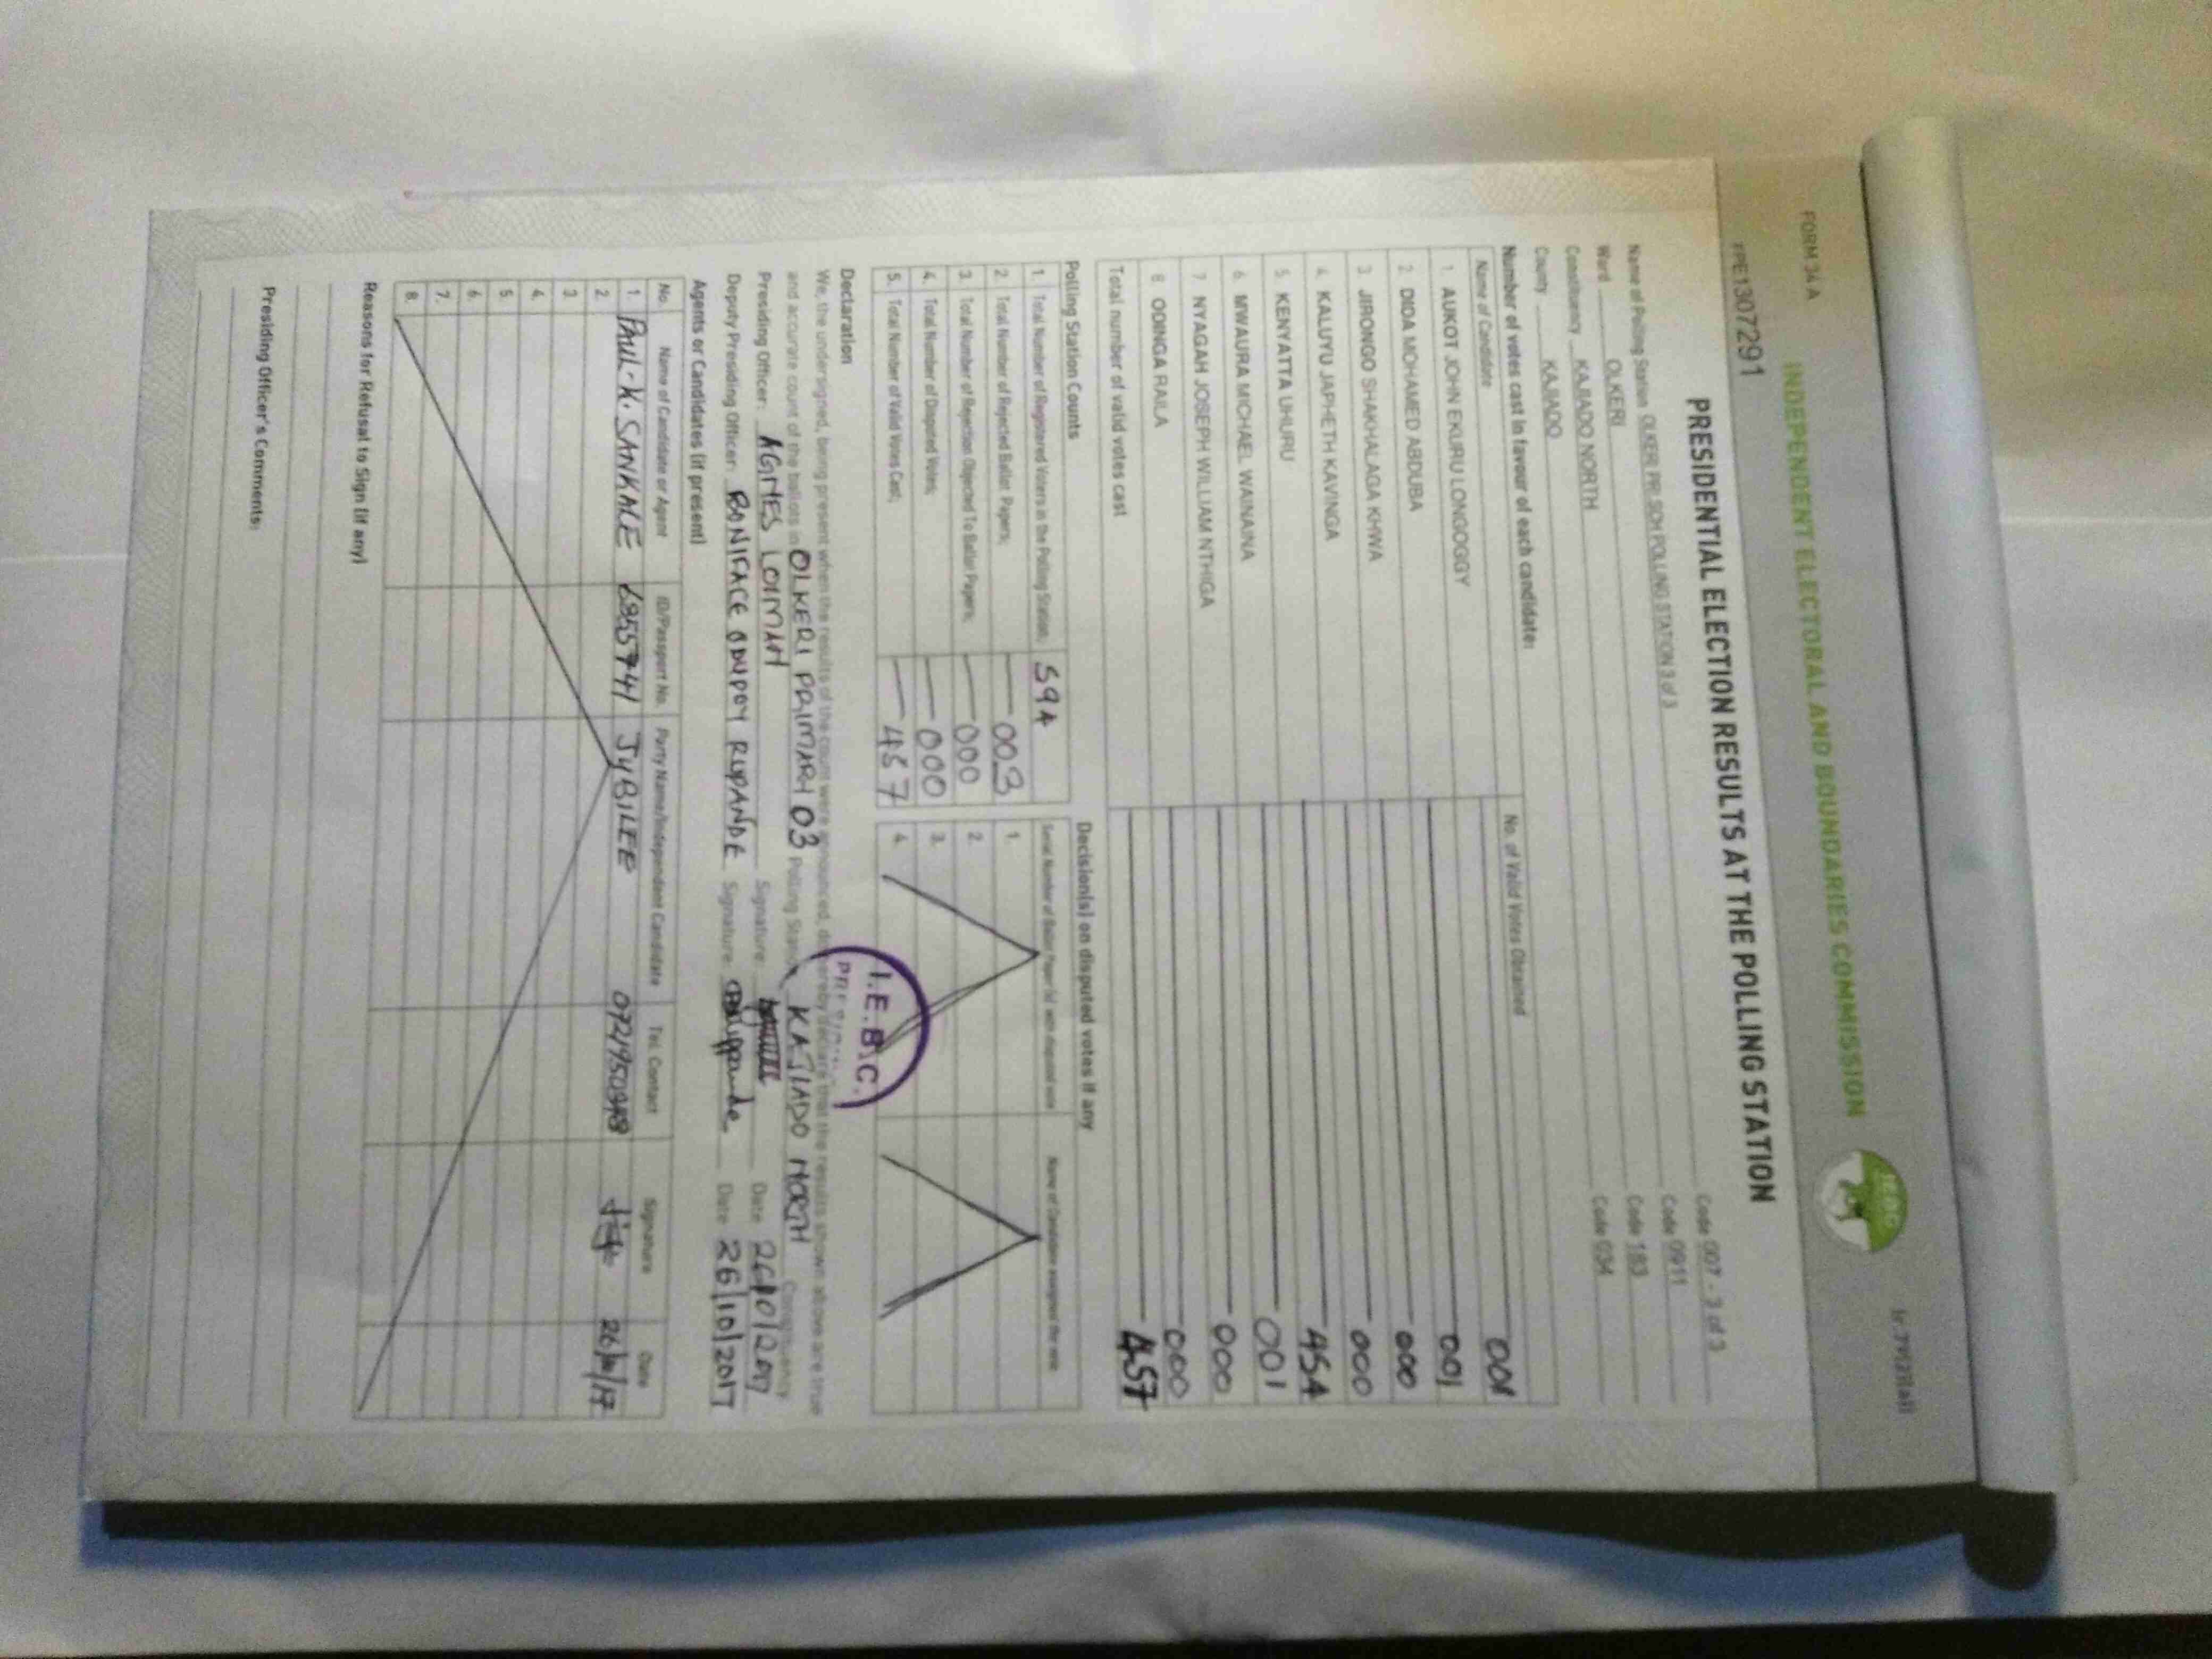 FORM 34 A
INDEPENDENT ELECTORAL AND BOUNDARIES COMMISSION
IEBC
FPE1307291
PRESIDENTIAL ELECTION RESULTS AT THE POLLING STATION
Name of Polling Station OLKER PRI SCH POLLING STATION 3 of 3 Code 007 - 3 of 3
Ward OLKERI Code 0911
Constituency KAJIADO NORTH Code 183
County KAJIADO Code 034
Number of votes cast in favour of each candidate:
Name of Candidate No. of Valid Votes Obtained
1. AUKOT JOHN EKURU LONGOGGY 001
2. DIDA MOHAMED ABDUBA 001
3. JIRONGO SHAKHALAGA KHWA 000
4. KALUYU JAPHETH KAVINGA 000
5. KENYATTA UHURU 454
6. MWAURA MICHAEL WAINAINA 001
7. NYAGAH JOSEPH WILLIAM NTHIGA 000
8. ODINGA RAILA 000
Total number of valid votes cast 457
Polling Station Counts
1. Total Number of Registered Voters in the Polling Station; 594
2. Total Number of Rejected Ballot Papers; 003
3. Total Number of Rejection Objected To Ballot Papers; 000
4. Total Number of Disputed Votes; 000
5. Total Number of Valid Votes Cast; 457
Decision(s) on disputed votes if any
Serial Number of Ballot Paper (s) with disputed vote Name of Candidate assigned the vote
1
2
3.
4.
I.E.B.C.
Declaration
We, the undersigned, being present when the results of the count were announced, do hereby declare that the results shown above are true
and accurate count of the ballots in OLKERI PRIMARY 03 Polling Station, KAJIADO NORTH Constituency
Presiding Officer: AGNES LOIMAN Signature: Date 26/10/2017
Deputy Presiding Officer: BONIFACE ODUPOY RUPANDE Signature Date 26/10/2017
Agents or Candidates (if present)
No. Name of Candidate or Agent ID/Passport No. Party Name/Independent Candidate Tel. Contact Signature Date
1. PAUL.K. SANKALE JUBILEE 26/10/17
2.
3.
4.
5.
6.
7.
8.
Reasons for Refusal to Sign (if any)
Presiding Officer's Comments: